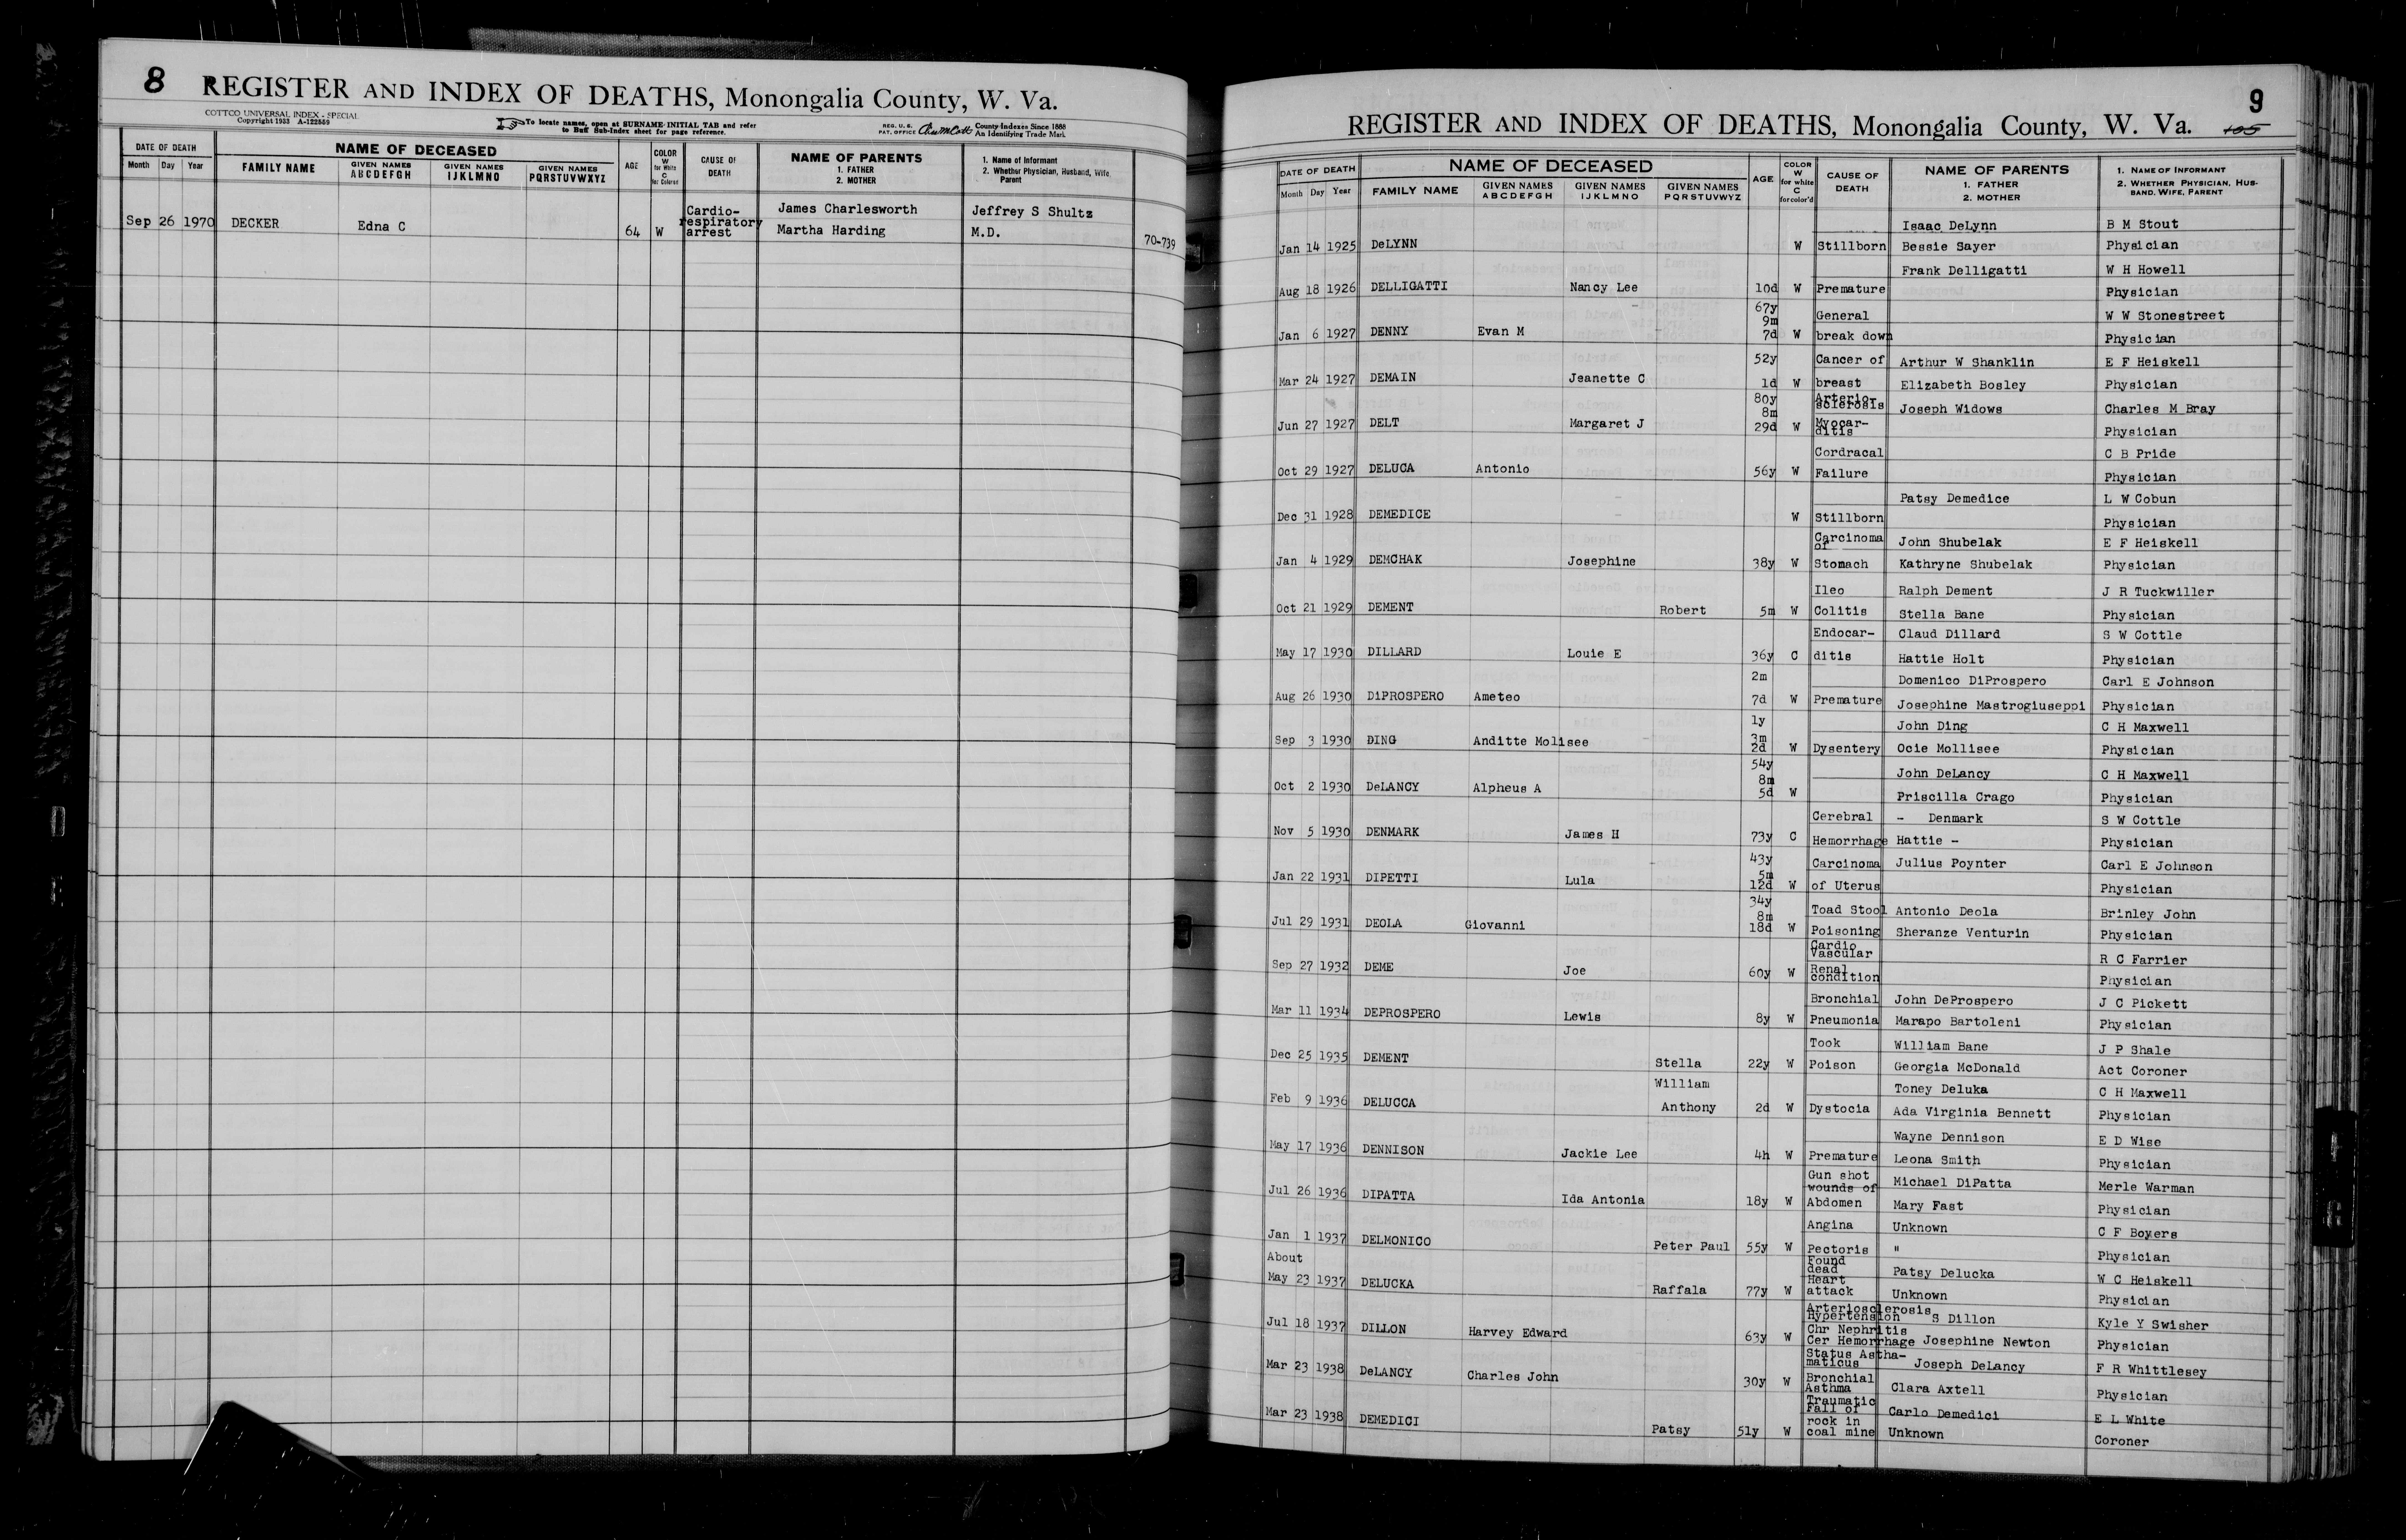 8 REGISTER AND INDEX OF DEATHS, Monongalia County, W. Va.
COTTCO UNIVERSAL INDEX - SPECIAL
Copyright 1933 A-122559
To locate names, open at SURNAME-INITIAL TAB and refer
to Buff Sub-Index sheet for page reference.
REG. U. S.
PAT. OFFICE
County Indexes Since 1888
An Identifying Trade Mark
DATE OF DEATH NAME OF DECEASED AGE COLOR W for White C for Colored CAUSE OF DEATH NAME OF PARENTS 1. FATHER 2. MOTHER 1. Name of Informant 2. Whether Physician, Husband, Wife, Parent
Month Day Year FAMILY NAME GIVEN NAMES ABCDEFGH GIVEN NAMES IJKLMNO GIVEN NAMES PQRSTUVWXYZ
Cardio- James Charlesworth Jeffrey S Shultz
Sep 26 1970 DECKER Edna C 64 W respiratory arrest Martha Harding M.D. 70-739
9
REGISTER AND INDEX OF DEATHS, Monongalia County, W. Va. 105
DATE OF DEATH NAME OF DECEASED AGE COLOR W for white C for color'd CAUSE OF DEATH NAME OF PARENTS 1. FATHER 2. MOTHER 1. NAME OF INFORMANT 2. WHETHER PHYSICIAN, HUSBAND, WIFE, PARENT
Month Day Year FAMILY NAME GIVEN NAMES ABCDEFGH GIVEN NAMES IJKLMNO GIVEN NAMES PQRSTUVWXYZ
Isaac DeLynn B M Stout
Jan 14 1925 DeLYNN W Stillborn Bessie Sayer Physician
Frank Delligatti W H Howell
Aug 18 1926 DELLIGATTI Nancy Lee 10d W Premature Physician
67y 9m General W W Stonestreet
Jan 6 1927 DENNY Evan M 7d W break down Physician
52y Cancer of Arthur W Shanklin E F Heiskell
Mar 24 1927 DEMAIN Jeanette C 1d W breast Elizabeth Bosley Physician
80y 8m Arterio-sclerosis Joseph Widows Charles M Bray
Jun 27 1927 DELT Margaret J 29d W Myocar-ditis Physician
Cordracal C B Pride
Oct 29 1927 DELUCA Antonio 56y W Failure Physician
Patsy Demedice L W Cobun
Dec 31 1928 DEMEDICE W Stillborn Physician
Carcinoma of John Shubelak E F Heiskell
Jan 4 1929 DEMCHAK Josephine 38y W Stomach Kathryne Shubelak Physician
Ileo Ralph Dement J R Tuckwiller
Oct 21 1929 DEMENT Robert 5m W Colitis Stella Bane Physician
Endocar- Claud Dillard S W Cottle
May 17 1930 DILLARD Louie E 36y C ditis Hattie Holt Physician
2m Domenico DiProspero Carl E Johnson
Aug 26 1930 DiPROSPERO Ameteo 7d W Premature Josephine Mastrogiuseppi Physician
1y 3m John Ding C H Maxwell
Sep 3 1930 DING Anditte Molisee 2d W Dysentery Ocie Mollisee Physician
54y 8m John DeLancy C H Maxwell
Oct 2 1930 DeLANCY Alpheus A 5d W Priscilla Crago Physician
Cerebral - Denmark S W Cottle
Nov 5 1930 DENMARK James H 73y C Hemorrhage Hattie - Physician
43y 5m Carcinoma Julius Poynter Carl E Johnson
Jan 22 1931 DIPETTI Lula 12d W of Uterus Physician
34y 8m Toad Stool Antonio Deola Brinley John
Jul 29 1931 DEOLA Giovanni 18d W Poisoning Sheranze Venturin Physician
Cardio Vascular R C Farrier
Sep 27 1932 DEME Joe 60y W Renal condition Physician
Bronchial John DeProspero J C Pickett
Mar 11 1934 DEPROSPERO Lewis 8y W Pneumonia Marapo Bartoleni Physician
Took William Bane J P Shale
Dec 25 1935 DEMENT Stella 22y W Poison Georgia McDonald Act Coroner
William Toney Deluka C H Maxwell
Feb 9 1936 DELUCCA Anthony 2d W Dystocia Ada Virginia Bennett Physician
Wayne Dennison E D Wise
May 17 1936 DENNISON Jackie Lee 4h W Premature Leona Smith Physician
Gun shot wounds of Michael DiPatta Merle Warman
Jul 26 1936 DIPATTA Ida Antonia 18y W Abdomen Mary Fast Physician
Angina Unknown C F Boyers
Jan 1 1937 DELMONICO Peter Paul 55y W Pectoris " Physician
About Found dead Patsy Delucka W C Heiskell
May 23 1937 DELUCKA Raffala 77y W Heart attack Unknown Physician
Arteriosclerosis Hypertension S Dillon Kyle Y Swisher
Jul 18 1937 DILLON Harvey Edward 63y W Chr Nephritis Cer Hemorrhage Josephine Newton Physician
Status Astha-maticus Joseph DeLancy F R Whittlesey
Mar 23 1938 DeLANCY Charles John 30y W Bronchial Asthma Clara Axtell Physician
Traumatic Fall of Carlo Demedici E L White
Mar 23 1938 DEMEDICI Patsy 51y W rock in coal mine Unknown Coroner